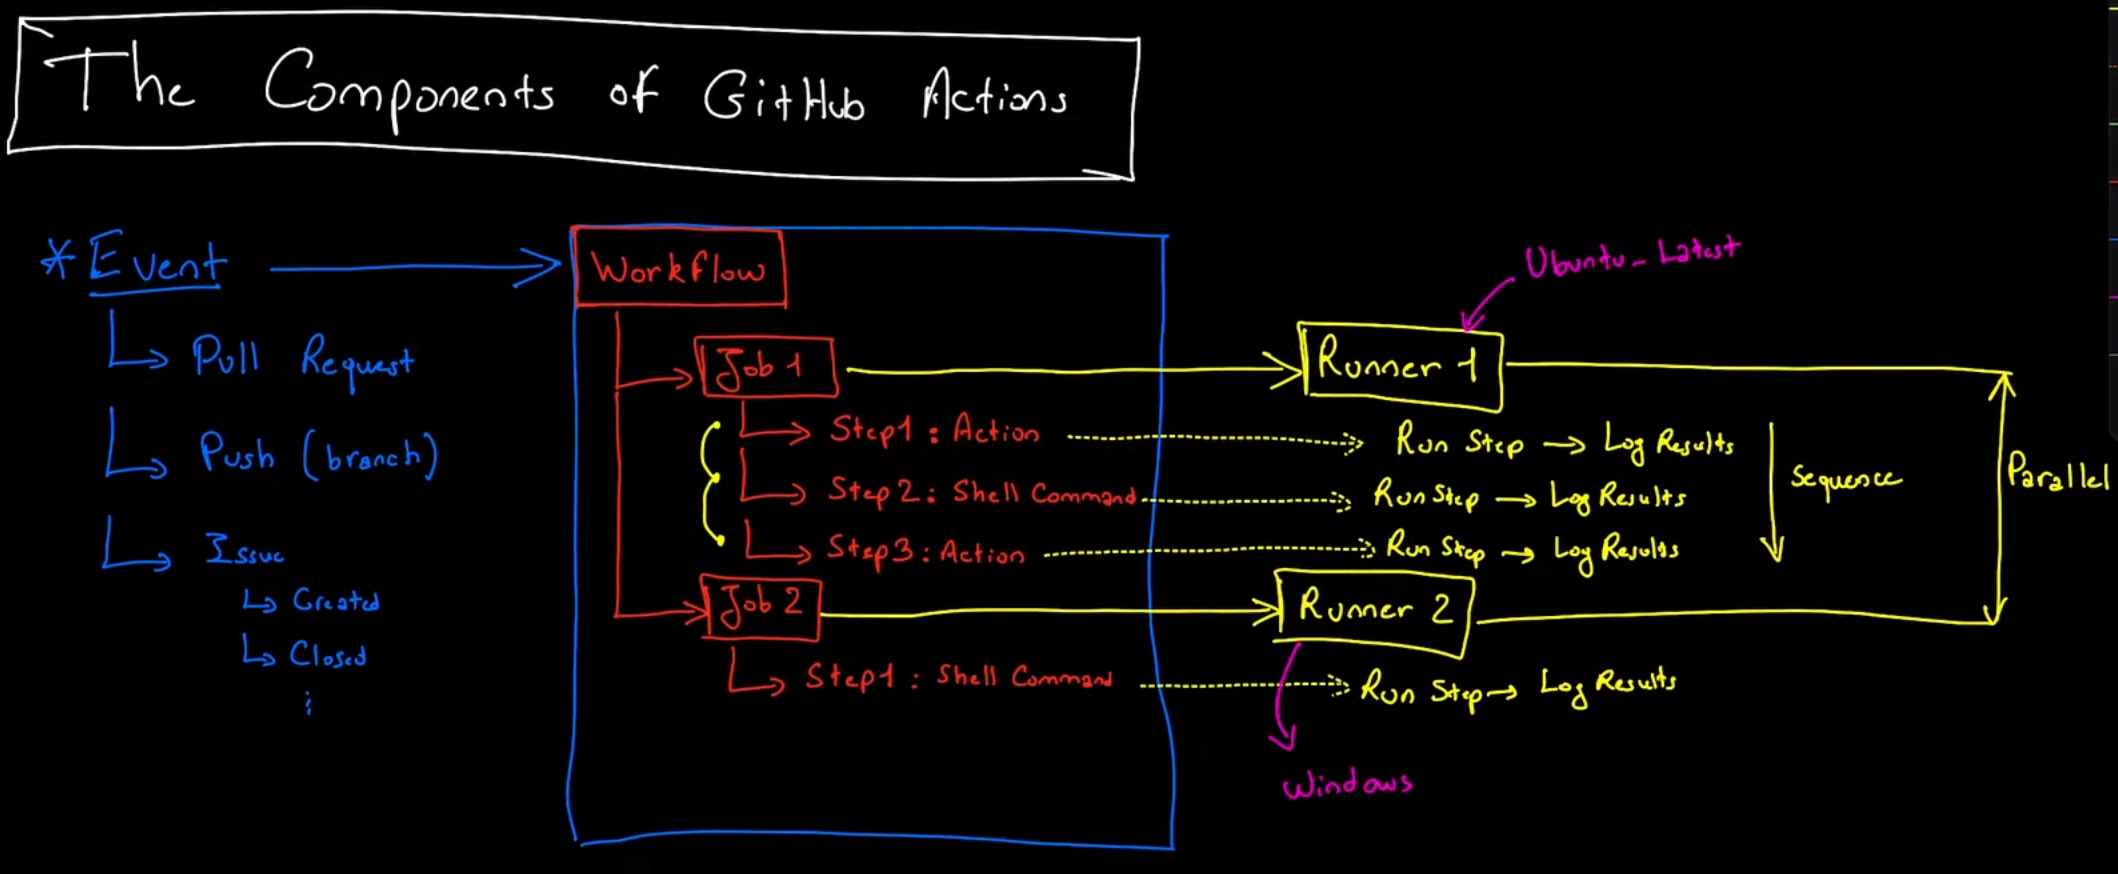 The Components of GitHub Actions
* Event
Pull Request
Push (branch)
Issue
Created
Closed
Workflow
Job 1
Step1 : Action
Step2 : Shell Command
Step3 : Action
Job 2
Step1 : Shell Command
Ubuntu_Latest
Runner 1
Run Step → Log Results
Run Step → Log Results
Run Step → Log Results
Sequence
Parallel
Runner 2
Run Step → Log Results
Windows